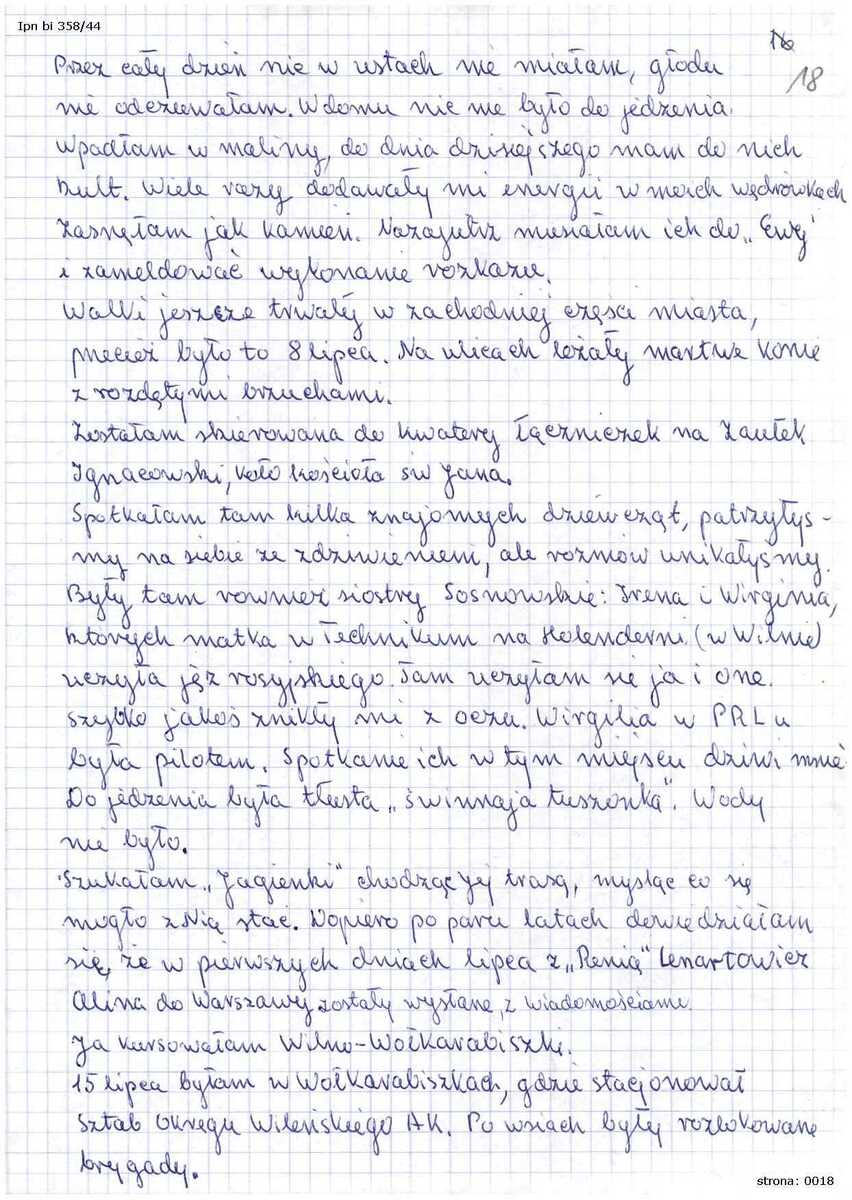 Ipn bi 358/44
18
Przez cały dzień nic w ustach nie miałam, głodu
nie odczuwałam. W domu nic nie było do jedzenia.
Wpadłam w maliny, do dnia dzisiejszego mam do nich
kult. Wiele razy dodawały mi energii w moich wędrówkach
Zasnęłam jak kamień. Nazajutrz musiałam iść do „Ewy"
i zameldować wykonanie rozkazu.
Walki jeszcze trwały w zachodniej części miasta,
przecież było to 8 lipca. Na ulicach leżały martwe konie
z rozdętymi brzuchami.
Zostałam skierowana do kwatery łączniczek na Zaułek
Ignacowski, koło kościoła św Jana.
Spotkałam tam kilka znajomych dziewcząt, patrzyłyś-
my na siebie ze zdziwieniem, ale rozmów unikałyśmy.
Były tam również siostry Sosnowskie: Irena i Wirginia,
których matka w Technikum na Holenderni (w Wilnie)
uczyła jęz rosyjskiego. Tam uczyłam się ja i one.
Szybko jakoś znikły mi z oczu. Wirgilia w PRLu
była pilotem. Spotkanie ich w tym miejscu dziwi mnie.
Do jedzenia była tłusta „świnnaja tuszonka". Wody
nie było.
Szukałam „Jagienki" chodząc jej trasą, myśląc co się
mogło z Nią stać. Dopiero po paru latach dowiedziałam
się, że w pierwszych dniach lipca z „Renią" Lenartowicz
Alina do Warszawy zostały wysłane, z wiadomościami.
Ja kursowałam Wilno-Wołkarabiszki.
15 lipca byłam w Wołkarabiszkach, gdzie stacjonował
Sztab Okręgu Wileńskiego AK. Po wsiach były rozlokowane
brygady.
strona: 0018